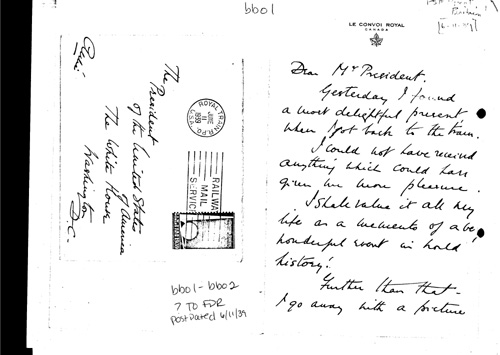 bb01
LE CONVOI ROYAL
CANADA
The
President
of the United States
of America
The White House
Washington
D.C.
ROYAL TRAIN R.P.O.
JUNE
11
1939
RAILWAY
MAIL
SERVICE
bb01-bb02
? TO FDR
postdated 6/11/39
Dear Mr President.
Yesterday I found
a most delightful present,
when I got back to the train.
I could not have received
anything which could have
given me more pleasure.
I shall value it all my
life as a memento of a
wonderful event in world
history!
Further than that -
I go away with a picture